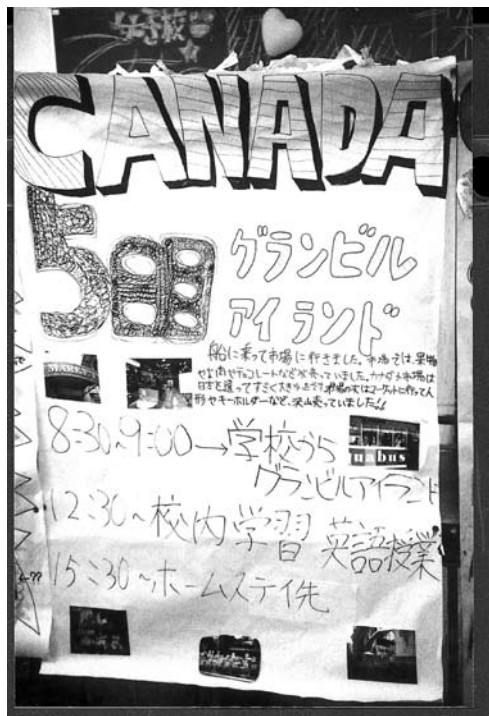 CANADA
5日目
グランビル
アイランド
船に乗って市場に行きました。市場では、果物
やお肉やチョコレートなどが売っていました。カナダの市場は
日本と違ってすごく大きかったです。市場の次はマーケットに行って人
形やキーホルダーなど、沢山売っていました!!
8:30~9:00→学校から
グランビルアイランド
uabus
12:30~校内学習 英語授業
15:30~ホームステイ先